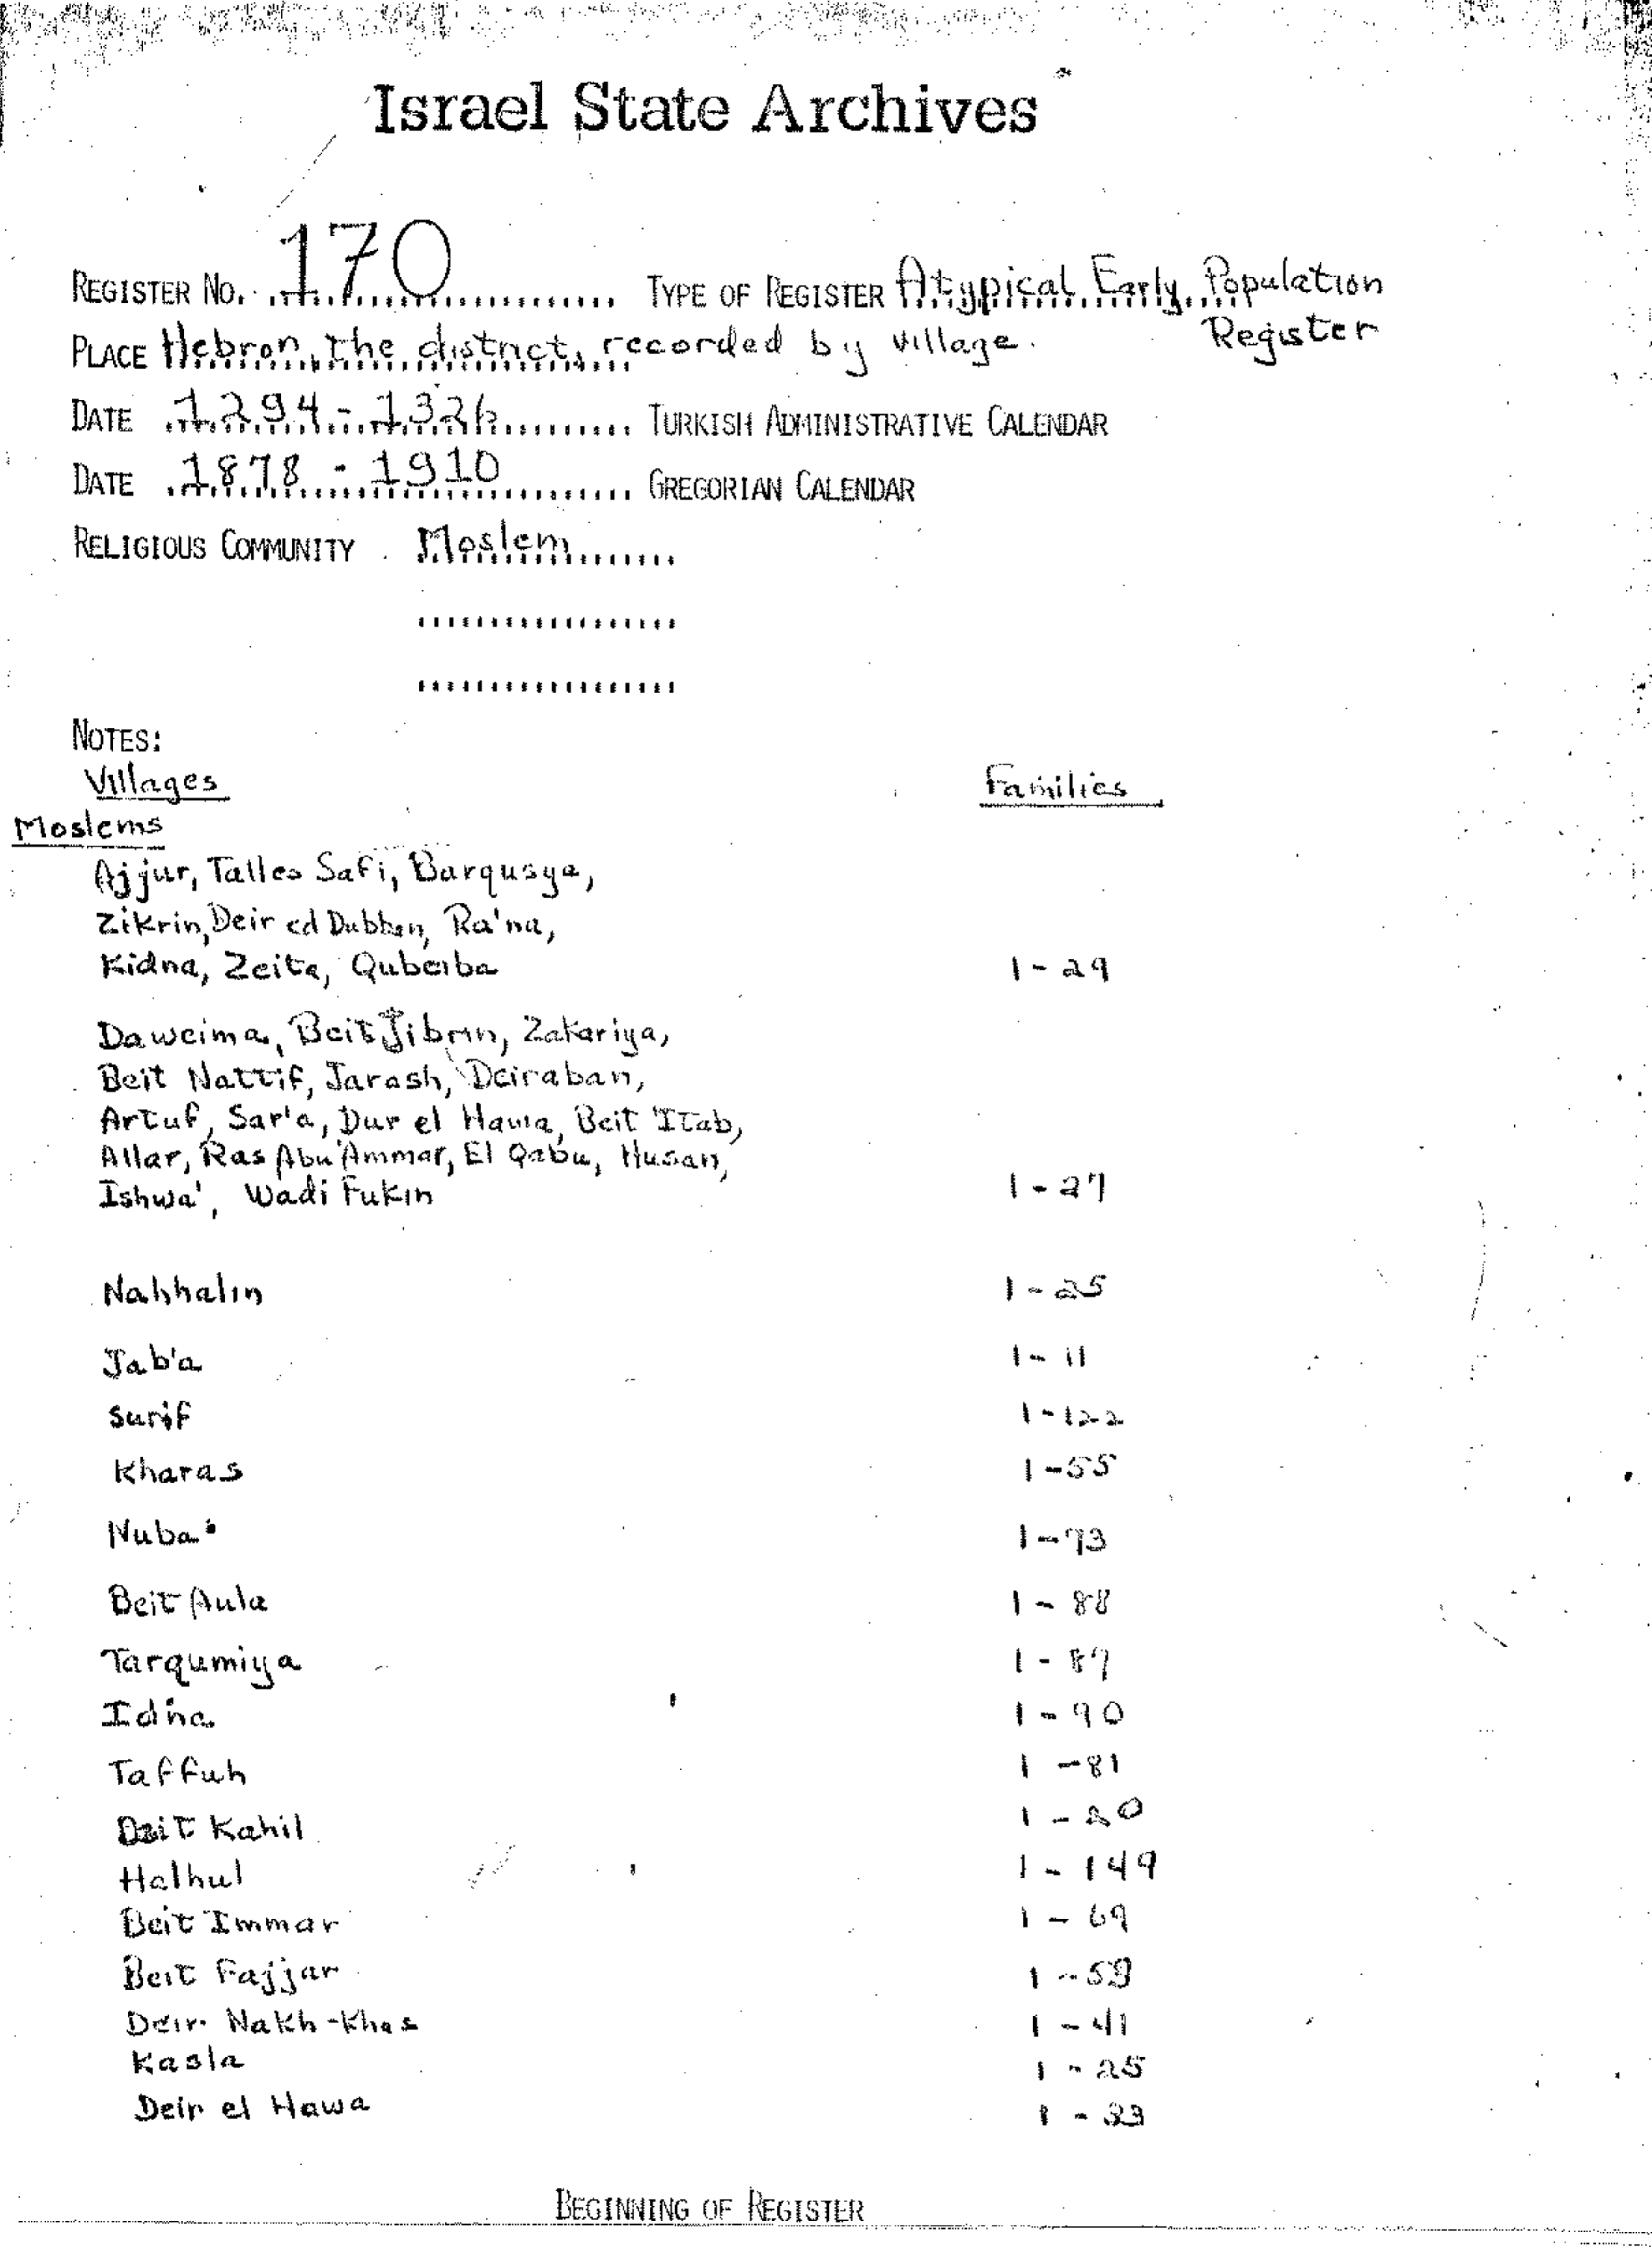 Israel State Archives
REGISTER NO. 170 TYPE OF REGISTER Atypical Early Population
Register
PLACE Hebron, the district, recorded by village.
DATE 1294 - 1326 TURKISH ADMINISTRATIVE CALENDAR
DATE 1878 - 1910 GREGORIAN CALENDAR
RELIGIOUS COMMUNITY Moslem
NOTES:
Villages Families
Moslems
Ajjur, Talles Safi, Barqusya,
Zikrin, Deir ed Dubban, Ra'na,
Kidna, Zeita, Qubeiba 1 - 29
Daweima, Beit Jibrin, Zakariya,
Beit Nattif, Jarash, Deiraban,
Artuf, Sar'a, Dur el Hawa, Beit 'Itab,
Allar, Ras Abu 'Ammar, El Qabu, Husan,
Ishwa', Wadi Fukin 1 - 27
Nahhalin 1 - 25
Jab'a 1 - 11
Surif 1 - 122
Kharas 1 - 55
Nuba 1 - 73
Beit Aula 1 - 88
Tarqumiya 1 - 87
Idna 1 - 90
Taffuh 1 - 81
Beit Kahil 1 - 20
Halhul 1 - 149
Beit Immar 1 - 69
Beit Fajjar 1 -
Deir Nakh-Khas 1 - 41
Kasla 1 - 25
Deir el Hawa 1 - 33
BEGINNING OF REGISTER